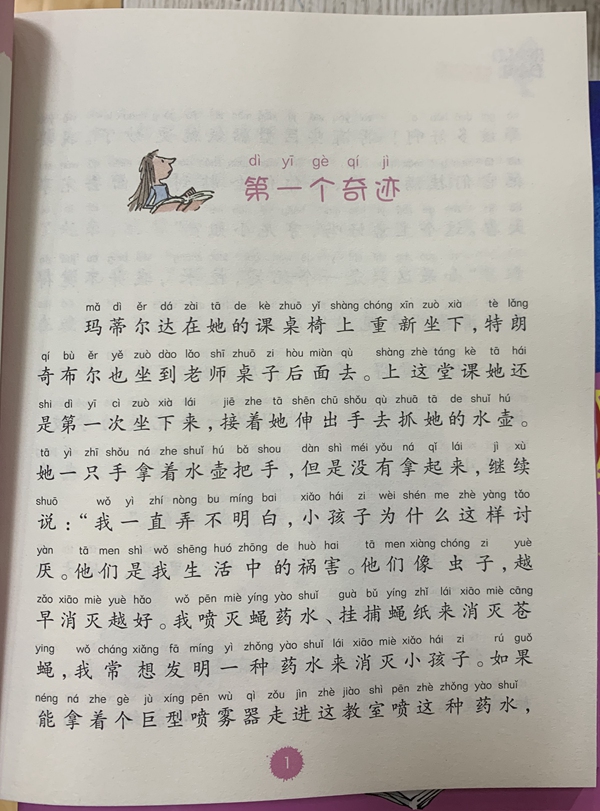 dì yī gè qí jì
第一个奇迹
mǎ dì ěr dá zài tā de kè zhuō yǐ shàng chóng xīn zuò xià tè lǎng
玛蒂尔达在她的课桌椅上重新坐下，特朗
qí bù ěr yě zuò dào lǎo shī zhuō zi hòu miàn qù shàng zhè táng kè tā hái
奇布尔也坐到老师桌子后面去。上这堂课她还
shì dì yī cì zuò xià lái jiē zhe tā shēn chū shǒu qù zhuā tā de shuǐ hú
是第一次坐下来，接着她伸出手去抓她的水壶。
tā yì zhī shǒu ná zhe shuǐ hú bǎ shou dàn shì méi yǒu ná qǐ lái jì xù
她一只手拿着水壶把手，但是没有拿起来，继续
shuō wǒ yì zhí nòng bu míng bai xiǎo hái zi wèi shén me zhè yàng tǎo
说：“我一直弄不明白，小孩子为什么这样讨
yàn tā men shì wǒ shēng huó zhōng de huò hai tā men xiàng chóng zi yuè
厌。他们是我生活中的祸害。他们像虫子，越
zǎo xiāo miè yuè hǎo wǒ pēn miè yíng yào shuǐ guà bǔ yíng zhǐ lái xiāo miè cāng
早消灭越好。我喷灭蝇药水、挂捕蝇纸来消灭苍
ying wǒ cháng xiǎng fā míng yì zhǒng yào shuǐ lái xiāo miè xiǎo hái zi rú guǒ
蝇，我常想发明一种药水来消灭小孩子。如果
néng ná zhe gè jù xíng pēn wù qì zǒu jìn zhè jiào shì pēn zhè zhǒng yào shuǐ
能拿着个巨型喷雾器走进这教室喷这种药水，
1